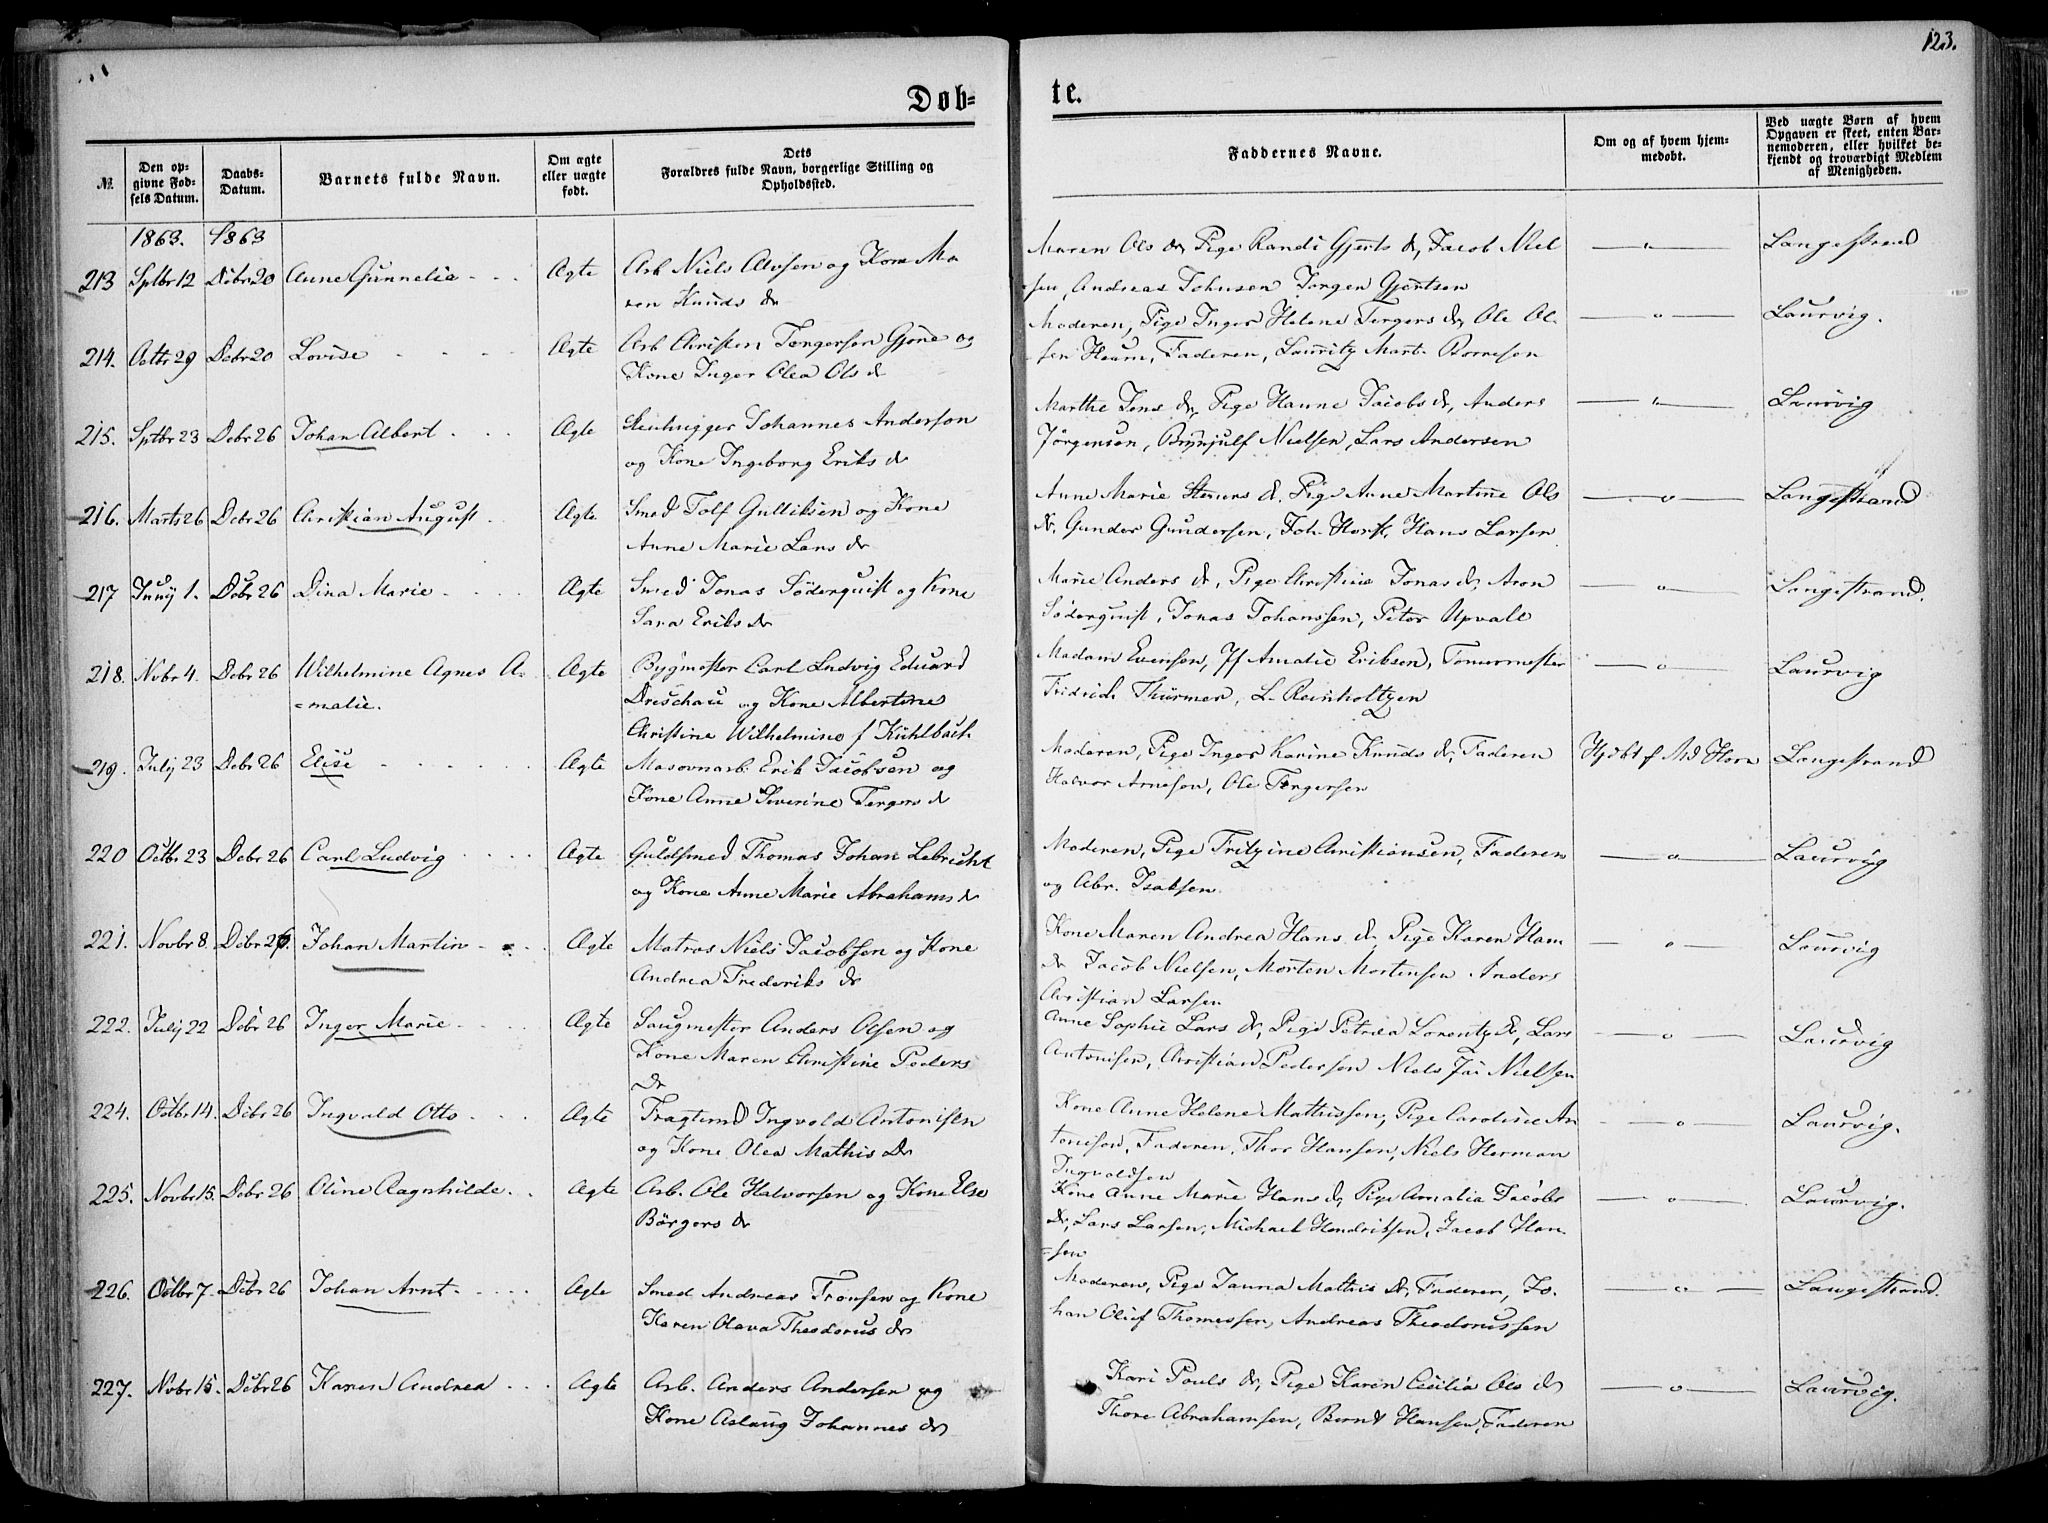 123.
Døb=
te.
№.
Den op-
givne Fød-
sels Datum.
Daabs-
Datum.
Barnets fulde Navn.
Om ægte
eller uægte
født.
Dets
Forældres fulde Navn, borgerlige Stilling og
Opholdssted.
Faddernes Navne.
Om og af hvem hjem-
medøbt.
Ved uægte Børn af hvem
Opgaven er skeet, enten Bar-
nemoderen, eller hvilket be-
kjendt og troværdigt Medlem
af Menigheden.
1863. 1863
213 Sptbr 12 Debr 20 Anne Gunnelia - - - Ægte Arb Niels Alvsen og Kone Ma
ren Knuds dr
Maren Ols dr, Pige Randi Gjerts dr, Jacob Niel
sen, Andreas Johnsen Jørgen Gjertsen
— " — Langestrand
214. Octbr 29 Debr 20 Lovise - - - Ægte Arb Christen Torgersen Gjone og
Kone Inger Olea Ols dr
Moderen, Pige Inger Helene Torgers dr, Ole Ol-
sen Heum, Faderen, Lauritz Mart. Borresen
— " — Laurvig.
215. Sptbr 23 Debr 26 Johan Albert - - Ægte Steenhugger Johannes Anderson
og Kone Ingeborg Eriks dr
Marthe Jens dr, Pige Hanne Jacobs dr, Anders
Jörgensen, Brynjulf Nielsen, Lars Andersen
— " — Laurvig
216. Marts 26 Debr 26 Christian August - Ægte Smed Tolf Gulliksen og Kone
Anne Marie Lars dr
Anne Marie Steners dr. Pige Anne Martine Ols
dr. Gunder Gundersen, Joh. Horsk, Hans Larsen
— o — Langestrand
217 Juny 1. Debr 26 Dina Marie - - - Ægte Smed Jonas Söderquist og Kone
Sara Eriks dr
Marie Anders dr, Pige Christine Jonas dr, Aron
Söderquist, Jonas Johanssen, Peter Upvall
— o — Langestrand.
218. Nvbr 4. Debr 26 Wilhelmine Agnes A-
=malie.
Ægte Bygmester Carl Ludvig Eduard
Dreschau og Kone Albertine
Christine Wilhelmine f Kühlbach
Madam Evensen, Jf Amalie Eriksen, Tømermester
Fridrich Thürmer, L. Reinholtzen
— o — Laurvig
219. July 23 Debr 26 Elise - - - Ægte Masovnarb. Erik Jacobsen og
Kone Anne Severine Torgers dr
Moderen, Pige Inger Karine Knuds dr, Faderen
Halvor Arnesen, Ole Torgersen
Hjdbt f Md Horn Langestrand
220 Octbr 23 Debr 26 Carl Ludvig - - - Ægte Guldsmed Thomas Johan Lebrecht
og Kone Anne Marie Abrahams dr
Moderen, Pige Fritzine Christiansen, Faderen
og Abr. Isaksen
— o — Laurvig
221. Novbr 8. Debr 26. Johan Martin - - Ægte Matros Niels Jacobsen og Kone
Andrea Frederiks dr
Kone Maren Andrea Hans dr Pige Karen Han
dr Jacob Nielsen, Morten Mortensen Anders
Christian Larsen
— o — Laurvig
222. July 22 Debr 26 Inger Marie - - Ægte Saugmester Anders Olsen og
Kone Maren Christine Peders
Dr
Anne Sophie Lars dr, Pige Petrea Lorentz dr, Lars
Antonisen, Christian Pedersen Niels Nielsen
— o — Laurvig
224. Octbr 14. Debr 26 Ingvald Otto - - Ægte Fragtmd Ingvald Antonisen
og Kone Olea Mathis Dr
Kone Anne Helene Mathissen, Pige Caroline An
tonisen, Faderen, Thor Hansen, Niels Herman
Ingvaldsen
— o — Laurvig.
225. Novbr 15. Debr 26 Oline Ragnhilde. - Ægte Arb. Ole Halvorsen og Kone Else
Börgers dr
Kone Anne Marie Hans dr, Pige Amalia Jacobs
dr, Lars Larsen, Michael Hendriksen, Jacob Han-
=sen
— o — Laurvig.
226. Octbr 7. Debr 26 Johan Arnt - - - Ægte Smed Andreas Tronsen og Kone
Karen Olava Theodorus dr
Moderen, Pige Janna Mathis dr, Faderen, Jo-
han Oluf Thomessen, Andreas Theodorussen
— o — Langestrand.
227. Nvbr 15. Debr 26 Karen Andrea - - Ægte Arb. Anders Andersen og
Kone Aslaug Johannes dr
Kari Pouls dr, Pige Karen Cecilia Ols dr
Thore Abrahamsen, Bernt Hansen, Faderen
— o — Laurvig.